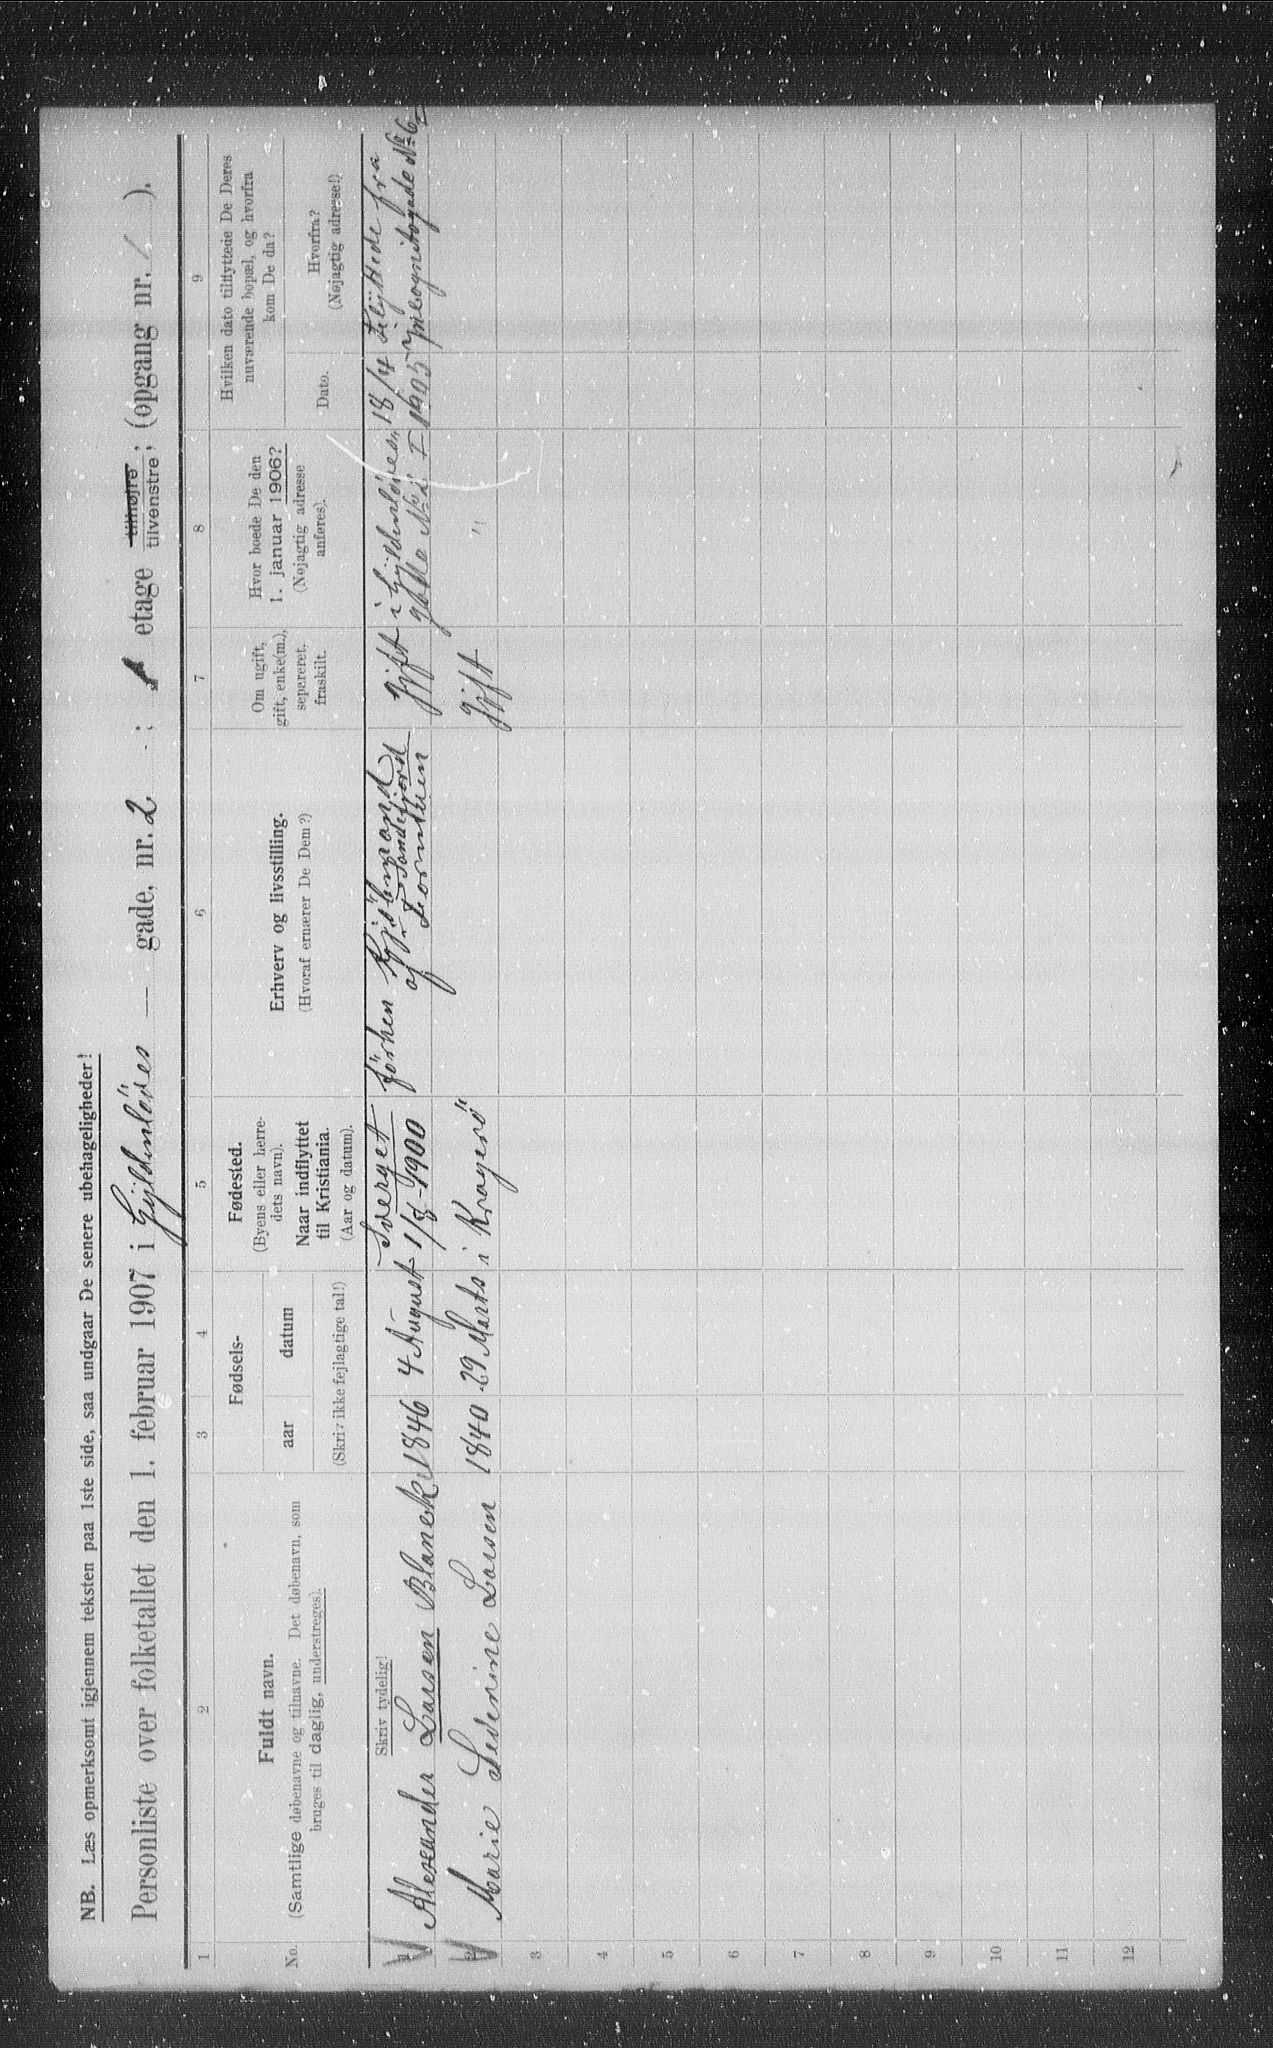 NB. Læs opmerksomt igjennem teksten paa 1ste side, saa undgaar De senere ubehageligheder!
Personliste over folketallet den 1. februar 1907 i Gyldenløves — gade, nr. 2 ; etage tilhøjre tilvenstre ; (opgang nr. ).
1 2 3 4 5 6 7 8 9
No.
Fuldt navn.
(Samtlige døbenavne og tilnavne. Det døbenavn, som
bruges til daglig, understreges).
Fødsels-
aar datum
(Skriv ikke fejlagtige tal!)
Fødested.
(Byens eller herre-
dets navn).
Naar indflyttet
til Kristiania.
(Aar og datum).
Erhverv og livsstilling.
(Hvoraf ernærer De Dem?)
Om ugift,
gift, enke(m.),
sepereret,
fraskilt.
Hvor boede De den
1. januar 1906?
(Nøjagtig adresse
anføres).
Hvilken dato tilflyttede De Deres
nuværende bopæl, og hvorfra
kom De da?
Dato.
Hvorfra?
(Nøjagtig adresse!)
Skriv tydelig!
1 Alexander Larsen 1846 4 August Sverget 1/8-1900 förhen Kjöbmand
af Formuen
Gift i Gyldenlöves
gade No 2 I
18/4 1905
tilflyttede fra
No 6
2 Marie Severine Larsen 1840 29 Marts i Kragerö Gift "
3
4
5
6
7
8
9
10
11
12